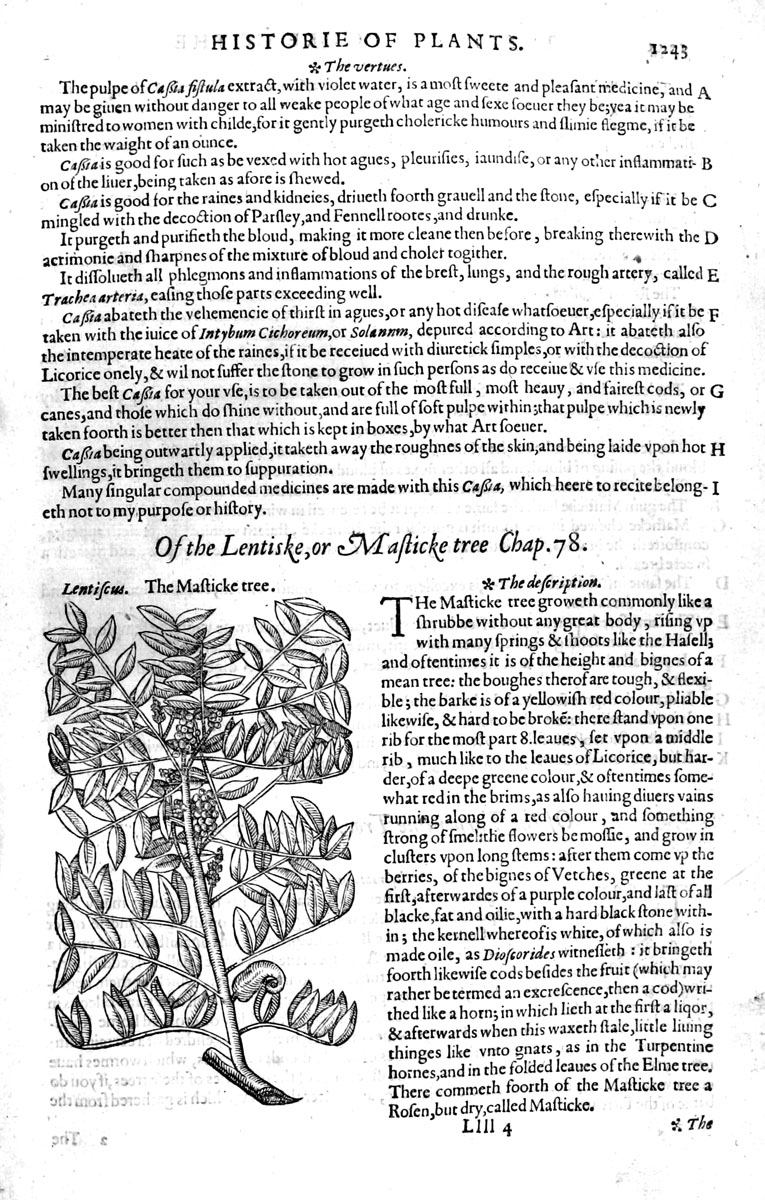 HISTORIE OF PLANTS. 1243
❇ The vertues.
The pulpe of Caßia fistula extract, with violet water, is a most sweete and pleasant medicine, and A
may be giuen without danger to all weake people of what age and sexe soeuer they be; yea it may be
ministred to women with childe, for it gently purgeth cholericke humours and slimie flegme, if it be
taken the waight of an ounce.
Caßia is good for such as be vexed with hot agues, pleurisies, iaundise, or any other inflammati- B
on of the liuer, being taken as afore is shewed.
Caßia is good for the raines and kidneies, driueth foorth grauell and the stone, especially if it be C
mingled with the decoction of Parsley, and Fennell rootes, and drunke.
It purgeth and purifieth the bloud, making it more cleane then before, breaking therewith the D
acrimonie and sharpnes of the mixture of bloud and choler togither.
It dissolueth all phlegmons and inflammations of the brest, lungs, and the rough artery, called E
Trachea arteria, easing those parts exceeding well.
Caßia abateth the vehemencie of thirst in agues, or any hot disease whatsoeuer, especially if it be F
taken with the iuice of Intybum Cichoreum, or Solanum, depured according to Art: it abateth also
the intemperate heate of the raines, if it be receiued with diuretick simples, or with the decoction of
Licorice onely, & wil not suffer the stone to grow in such persons as do receiue & vse this medicine.
The best Caßia for your vse, is to be taken out of the most full, most heauy, and fairest cods, or G
canes, and those which do shine without, and are full of soft pulpe within; that pulpe which is newly
taken foorth is better then that which is kept in boxes, by what Art soeuer.
Caßia being outwartly applied, it taketh away the roughnes of the skin, and being laide vpon hot H
swellings, it bringeth them to suppuration.
Many singular compounded medicines are made with this Caßia, which heere to recite belong- I
eth not to my purpose or history.
Of the Lentiske, or Masticke tree Chap. 78.
Lentiscus. The Masticke tree.
❇ The description.
THe Masticke tree groweth commonly like a
shrubbe without any great body, rising vp
with many springs & shoots like the Hasell;
and oftentimes it is of the height and bignes of a
mean tree: the boughes therof are tough, & flexi-
ble; the barke is of a yellowish red colour, pliable
likewise, & hard to be brokē: there stand vpon one
rib for the most part 8. leaues, set vpon a middle
rib, much like to the leaues of Licorice, but har-
der, of a deepe greene colour, & oftentimes some-
what red in the brims, as also hauing diuers vains
running along of a red colour, and something
strong of smel: the flowers be mossie, and grow in
clusters vpon long stems: after them come vp the
berries, of the bignes of Vetches, greene at the
first, afterwardes of a purple colour, and last of all
blacke, fat and oilie, with a hard black stone with-
in; the kernell whereof is white, of which also is
made oile, as Dioscorides witnesseth: it bringeth
foorth likewise cods besides the fruit (which may
rather be termed an excrescence, then a cod) wri-
thed like a horn; in which lieth at the first a liqor,
& afterwards when this waxeth stale, little liuing
thinges like vnto gnats, as in the Turpentine
hornes, and in the folded leaues of the Elme tree.
There commeth foorth of the Masticke tree a
Rosen, but dry, called Masticke.
Llll 4 ❇ The